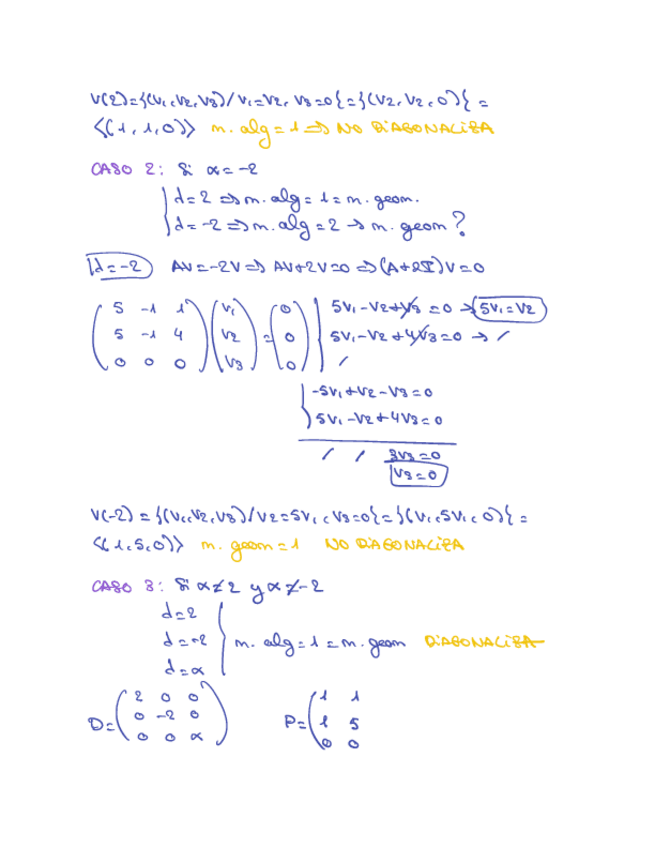 V(2)={(V₁,V₂,V₃)/V₁=V₂, V₃=0}={(V₂,V₂,0)}=
<(1,1,0)> m.alg=1⇒ NO DIAGONALIZA
CASO 2: Si α=-2
d=2 ⇒ m.alg=1=m.geom.
d=-2 ⇒ m.alg=2 → m.geom?
d=-2 AV=-2V⇒ AV+2V=0 ⇒(A+2I)V=0
5 -1 1 V₁ 0 5V₁-V₂+V₃=0 → 5V₁=V₂
5 -1 4 V₂ = 0 5V₁-V₂+4V₃=0 → /
0 0 0 V₃ 0 /
-5V₁+V₂-V₃=0
5V₁-V₂+4V₃=0
/ / 3V₃=0
V₃=0
V(-2)={(V₁,V₂,V₃)/V₂=5V₁, V₃=0}={(V₁,5V₁,0)}=
<(1,5,0)> m.geom=1 NO DIAGONALIZA
CASO 3: Si α≠2 y α≠-2
d=2
d=-2 m.alg=1=m.geom DIAGONALIZA
d=α
2 0 0 1 1
D= 0 -2 0 P= 1 5
0 0 α 0 0